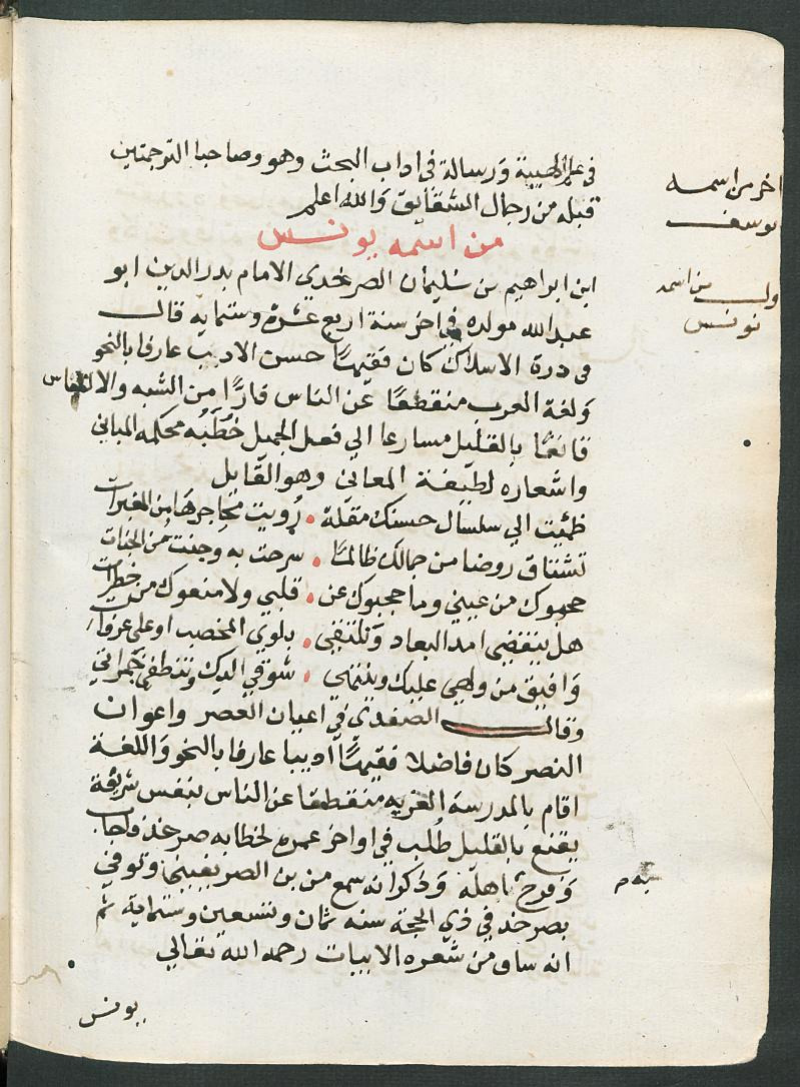 في علم الطيبة ورسالة في اداب البحث وهو وصاحبا الترجمتين
قبله من رجال الشقايق والله اعلم
من اسمه يونس
ابن ابراهيم بن سليمان الصرخدي الامام بدر الدين ابو
عبد الله مولده في اخر سنة اربع عشرة وستمايه قال
في درة الاسلاك كان فقيها حسن الاديب عارفا بالنحو
ولغة العرب منقطعا عن الناس فارا من الشبه والالتباس
قانعا بالقليل مسارعا الي فعل الجميل خطبه محكمه المباني
واشعاره لطيفة المعاني وهو القايل
ظمئت الي سلسال حسنك مقلة . رويت محاجرها من العبرات
تشتاق روضا من جمالك طالما . سرحت به وجنت من الجنات
حجبوك من عيني وما حجبوك عن . قلبي ولا منعوك من خطرات
هل ينقضي امد البعاد ونلتقي . بلوي المخصب او على عرفات
وافيق من ولهي عليك وينتهي . شوقي اليك وتنطفي جمراتي
وقال الصفدي في اعيان العصر واعوان
النصر كان فاضلا فقيها اديبا عارفا بالنحو واللغة
اقام بالمدرسة العزيه منقطعا عن الناس بنفس شريفة
يقنع بالقليل طلب في اواخر عمره لخطابه صرخد فاجاب
وفرح باهله وذكر انه سمع من بن الصريفيني وتوفي
بصرخد في ذي الحجة سنه ثمان وتسعين وستماية ثم
انه ساق من شعره الابيات رحمه الله تعالي
يونس
اخر من اسمه
يوسف
من اسمه
يونس